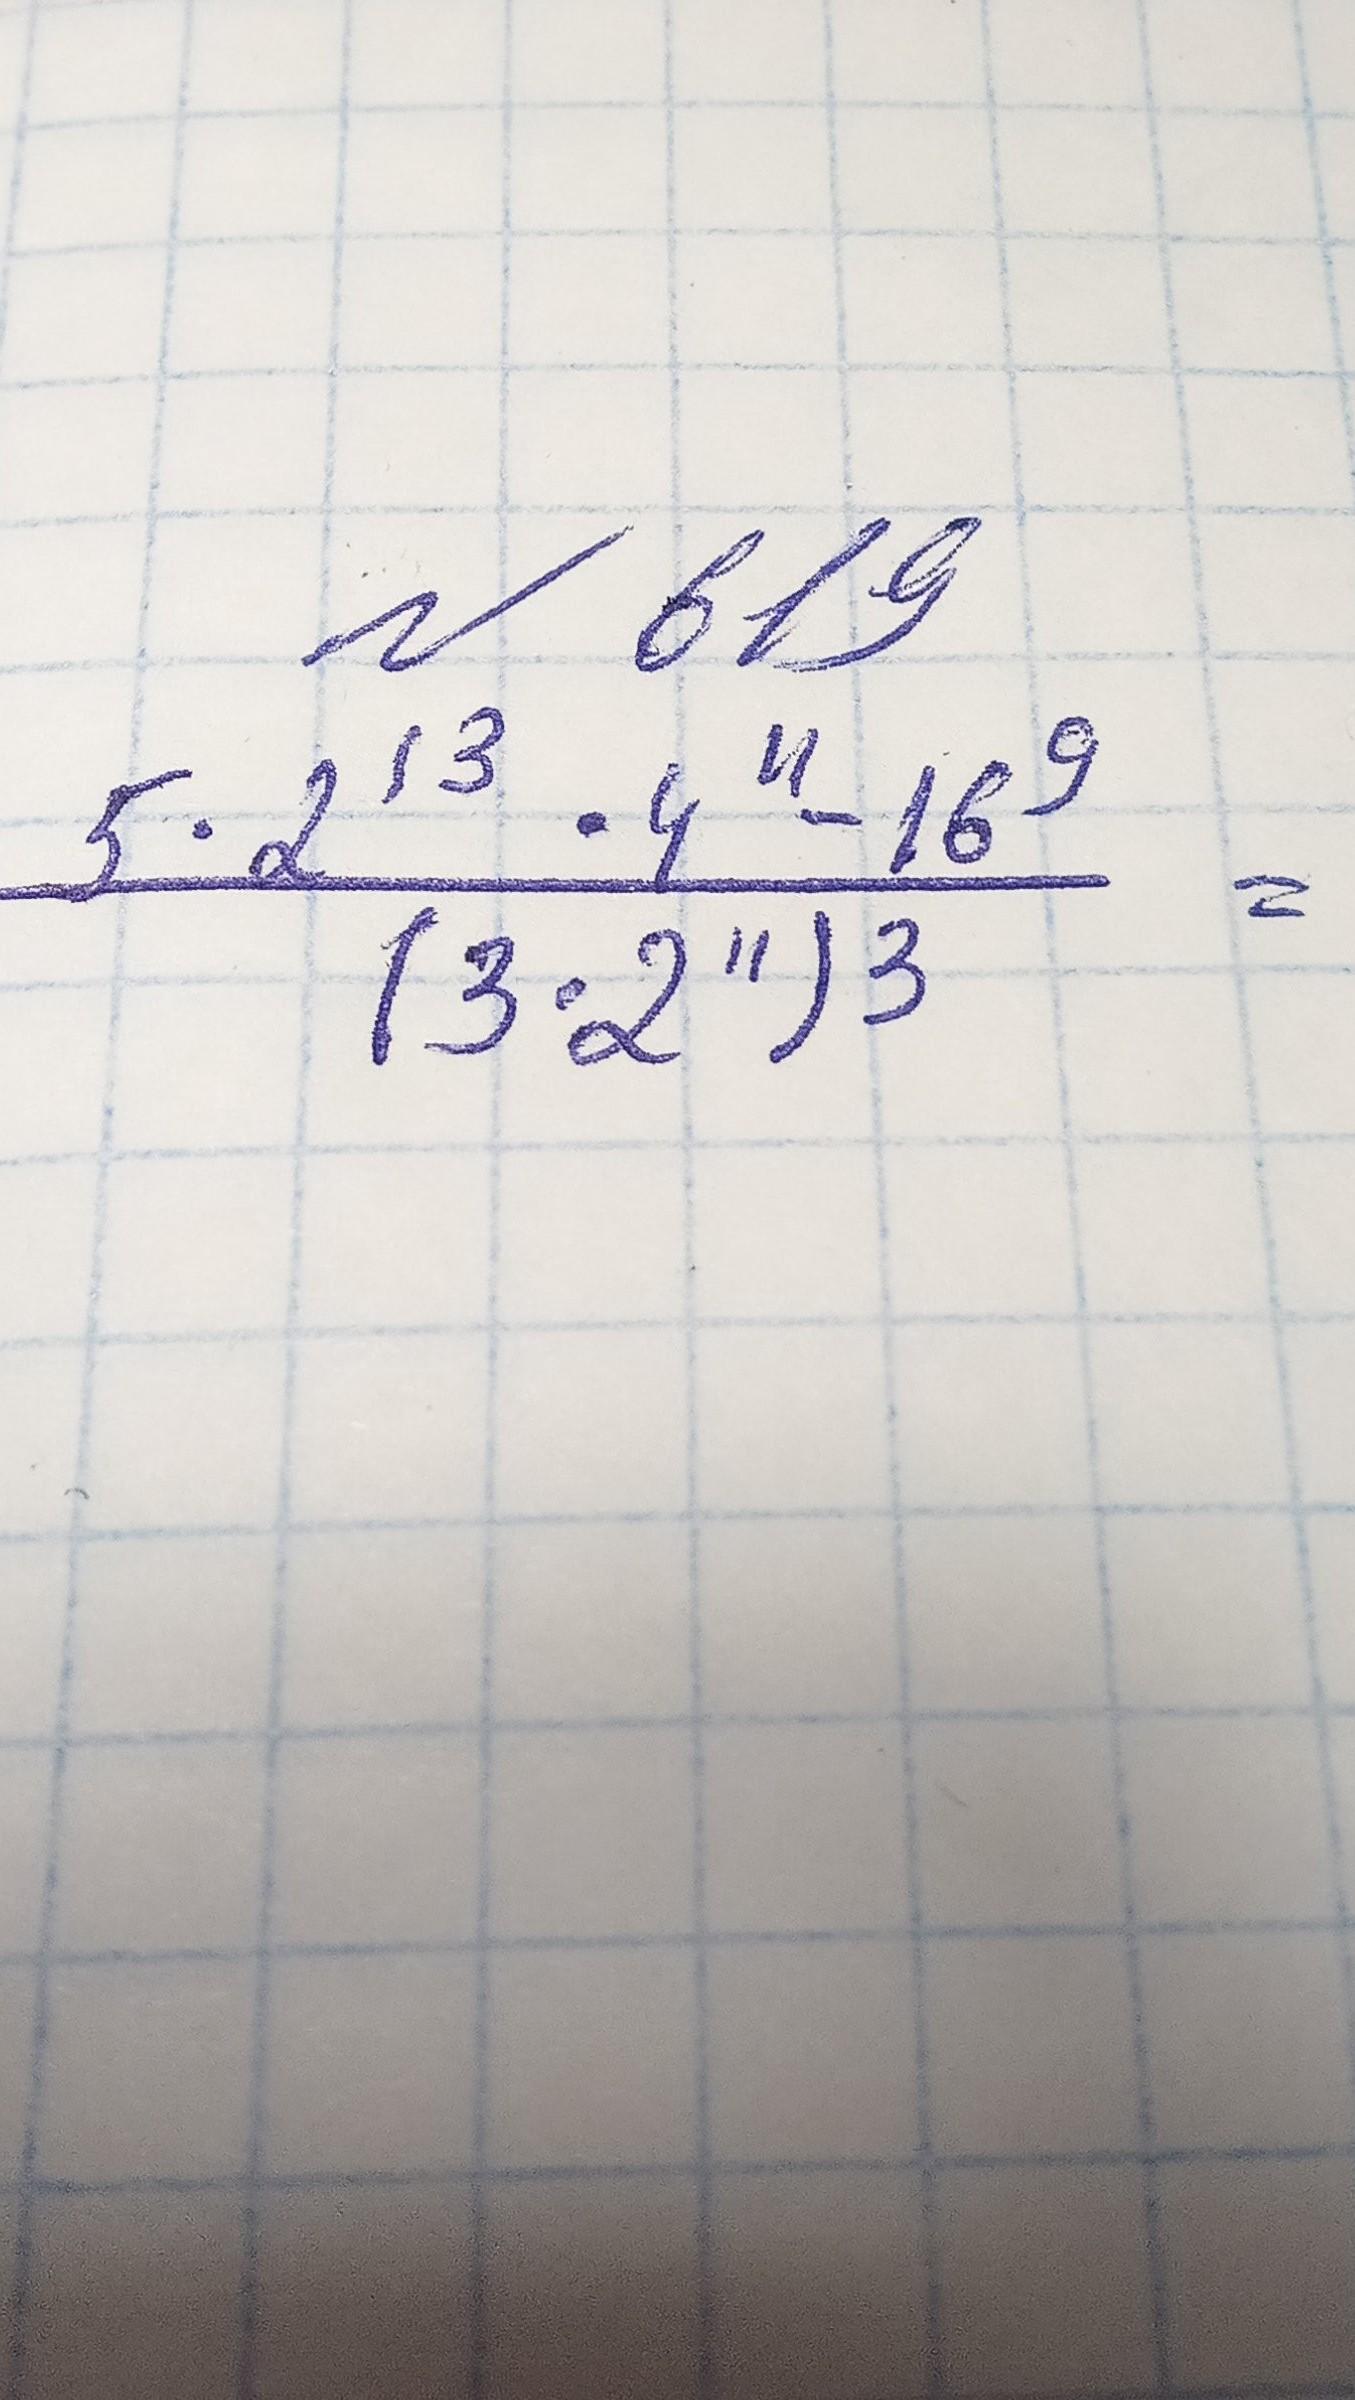 № 619
5·2¹³ · 4¹¹ - 16⁹
(3·2¹¹)³ =